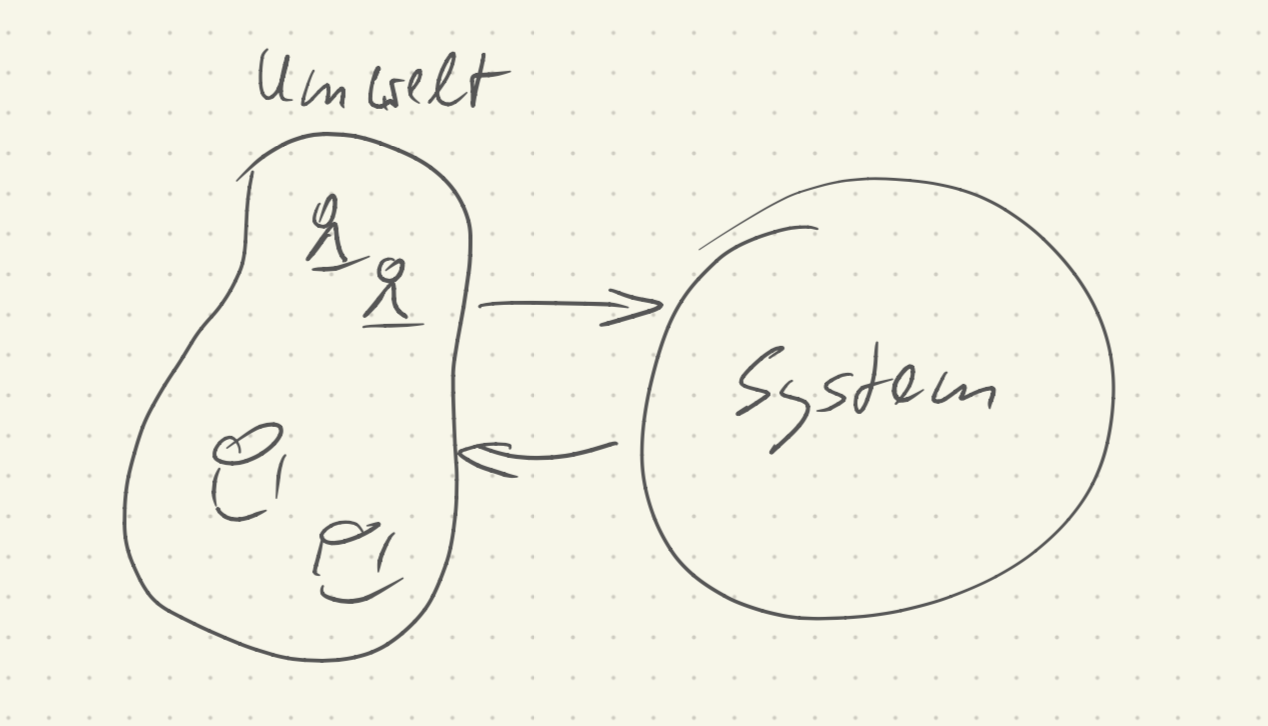 Umwelt
System